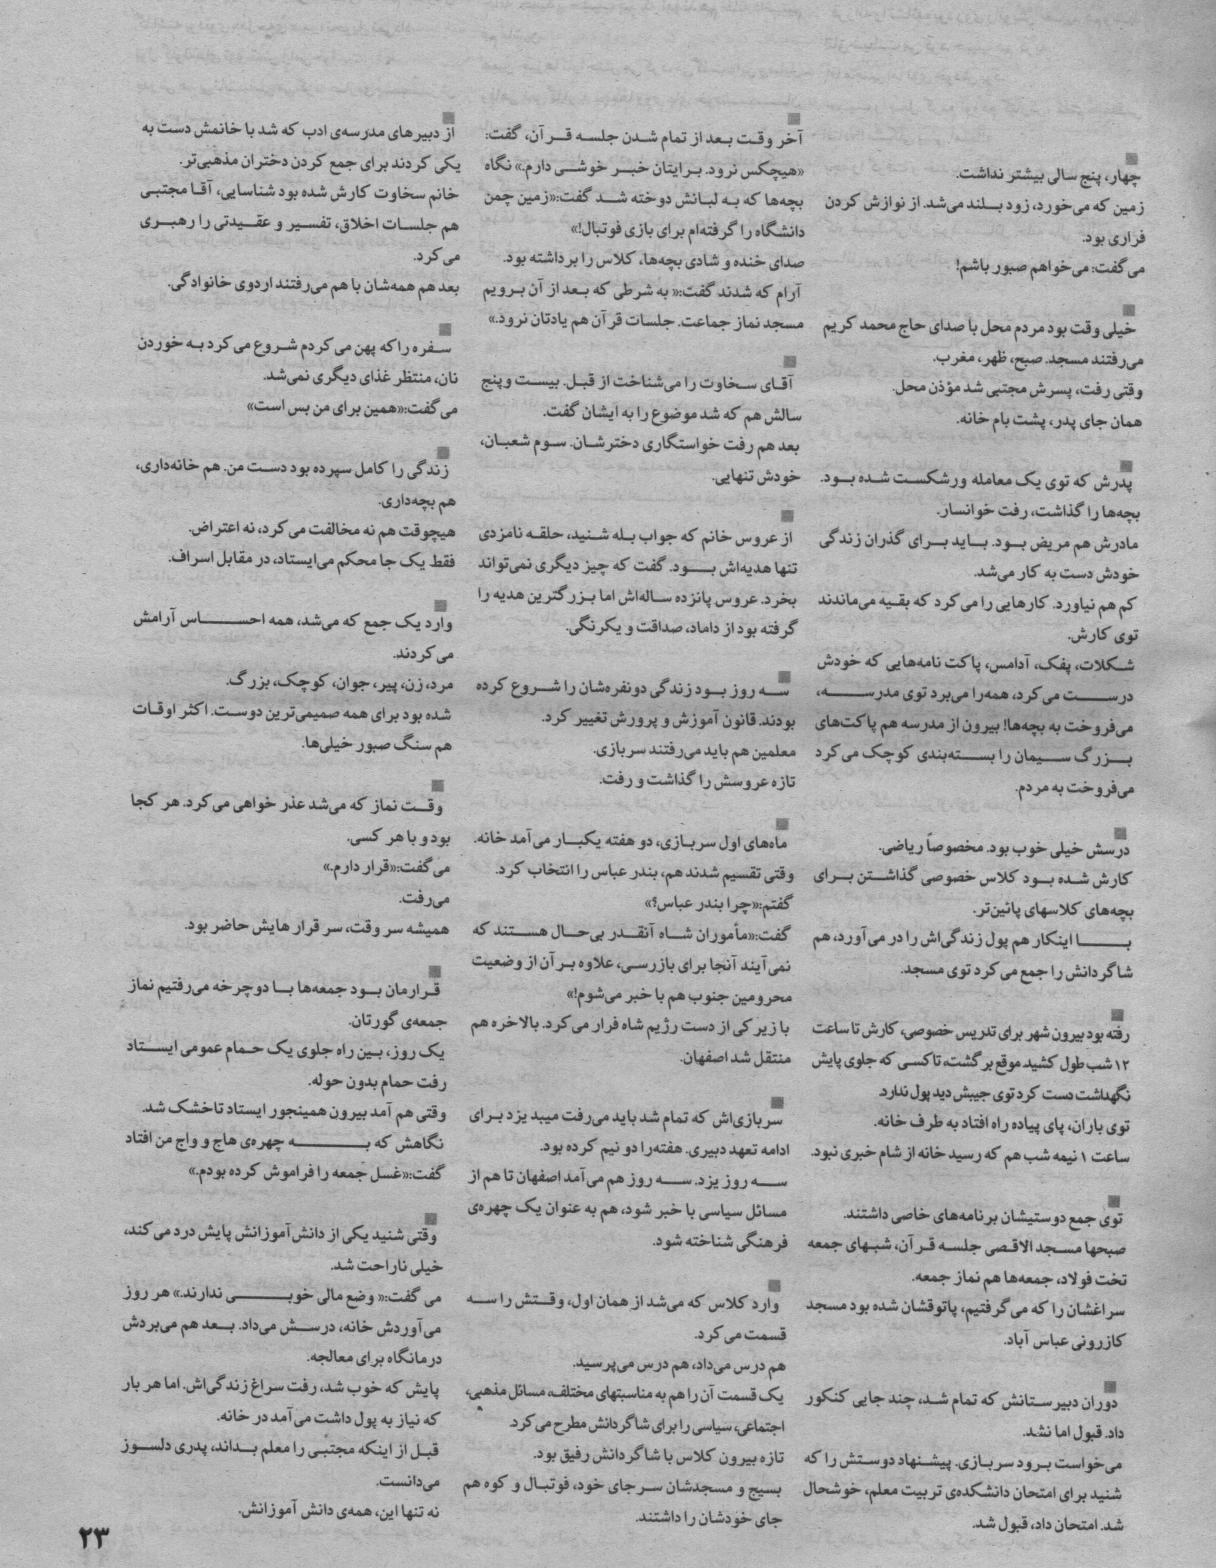 چهار، پنج سالی بیشتر نداشت.
زمین که می‌خورد، زود بلند می‌شد. از نوازش کردن
فراری بود.
می‌گفت: می‌خواهم صبور باشم!
خیلی وقت بود مردم محل با صدای حاج محمد کریم
می‌رفتند مسجد. صبح، ظهر، مغرب.
وقتی رفت، پسرش مجتبی شد مؤذن محل.
همان جای پدر، پشت بام خانه.
پدرش که توی یک معامله ورشکست شده بود.
بچه‌ها را گذاشت، رفت خوانسار.
مادرش هم مریض بود. باید برای گذران زندگی
خودش دست به کار می‌شد.
کم هم نیاورد. کارهایی را می‌کرد که بقیه می‌ماندند
توی کارش.
شکلات، پفک، آدامس، پاکت نامه‌هایی که خودش
درست می‌کرد، همه‌را می‌برد توی مدرسه،
می‌فروخت به بچه‌ها! بیرون از مدرسه هم پاکت‌های
بزرگ سیمان را بسته‌بندی کوچک می‌کرد
می‌فروخت به مردم.
درسش خیلی خوب بود. مخصوصاً ریاضی.
کارش شده بود کلاس خصوصی گذاشتن برای
بچه‌های کلاسهای پائین‌تر.
با اینکار هم پول زندگی‌اش را در می‌آورد، هم
شاگردانش را جمع می‌کرد توی مسجد.
رفته بود بیرون شهر برای تدریس خصوصی، کارش تا ساعت
۱۲ شب طول کشید موقع برگشت، تاکسی که جلوی پایش
نگهداشت دست کرد توی جیبش دید پول ندارد.
توی باران، پای پیاده راه افتاد به طرف خانه.
ساعت ۱ نیمه شب هم که رسید خانه از شام خبری نبود.
توی جمع دوستیشان برنامه‌های خاصی داشتند.
صبحها مسجد الاقصی جلسه قرآن، شبهای جمعه
تخت فولاد، جمعه‌ها هم نماز جمعه.
سراغشان را که می‌گرفتیم، پاتوقشان شده بود مسجد
کازرونی عباس آباد.
دوران دبیرستانش که تمام شد، چند جایی کنکور
داد. قبول اما نشد.
می‌خواست برود سربازی. پیشنهاد دوستش را که
شنید برای امتحان دانشکده‌ی تربیت معلم، خوشحال
شد. امتحان داد، قبول شد.
آخر وقت بعد از تمام شدن جلسه قرآن، گفت:
«هیچکس نرود. برایتان خبر خوشی دارم.» نگاه
بچه‌ها که به لبانش دوخته شد گفت:«زمین چمن
دانشگاه را گرفته‌ام برای بازی فوتبال!»
صدای خنده و شادی بچه‌ها، کلاس را برداشته بود.
آرام که شدند گفت:« به شرطی که بعد از آن برویم
مسجد نماز جماعت. جلسات قرآن هم یادتان نرود.»
آقای سخاوت را می‌شناخت از قبل. بیست و پنج
سالش هم که شد موضوع را به ایشان گفت.
بعد هم رفت خواستگاری دخترشان. سوم شعبان،
خودش تنهایی.
از عروس خانم که جواب بله شنید، حلقه نامزدی
تنها هدیه‌اش بود. گفت که چیز دیگری نمی‌تواند
بخرد. عروس پانزده ساله‌اش اما بزرگترین هدیه را
گرفته بود از داماد، صداقت و یکرنگی.
سه روز بود زندگی دو نفره‌شان را شروع کرده
بودند. قانون آموزش و پرورش تغییر کرد.
معلمین هم باید می‌رفتند سربازی.
تازه عروسش را گذاشت و رفت.
ماه‌های اول سربازی، دو هفته یکبار می‌آمد خانه.
وقتی تقسیم شدند هم، بندر عباس را انتخاب کرد.
گفتم:«چرا بندر عباس؟»
گفت:«مأموران شاه آنقدر بی‌حال هستند که
نمی‌آیند آنجا برای بازرسی، علاوه بر آن از وضعیت
محرومین جنوب هم با خبر می‌شوم!»
با زیرکی از دست رژیم شاه فرار می‌کرد. بالاخره هم
منتقل شد اصفهان.
سربازی‌اش که تمام شد باید می‌رفت میبد یزد برای
ادامه تعهد دبیری. هفته‌را دو نیم کرده بود.
سه روز یزد. سه روز هم می‌آمد اصفهان تا هم از
مسائل سیاسی با خبر شود، هم به عنوان یک چهره‌ی
فرهنگی شناخته شود.
وارد کلاس که می‌شد از همان اول، وقتش را سه
قسمت می‌کرد.
هم درس می‌داد، هم درس می‌پرسید.
یک قسمت آن را هم به مناسبتهای مختلف، مسائل مذهبی،
اجتماعی، سیاسی را برای شاگردانش مطرح می‌کرد.
تازه بیرون کلاس با شاگردانش رفیق بود.
بسیج و مسجدشان سر جای خود، فوتبال و کوه هم
جای خودشان را داشتند.
از دبیرهای مدرسه‌ی ادب که شد با خانمش دست به
یکی کردند برای جمع کردن دختران مذهبی‌تر.
خانم سخاوت کارش شده بود شناسایی، آقا مجتبی
هم جلسات اخلاق، تفسیر و عقیدتی را رهبری
می‌کرد.
بعد هم همه‌شان با هم می‌رفتند اردوی خانوادگی.
سفره را که پهن می‌کردم شروع می‌کرد به خوردن
نان، منتظر غذای دیگری نمی‌شد.
می‌گفت:«همین برای من بس است»
زندگی را کامل سپرده بود دست من. هم خانه‌داری،
هم بچه‌داری.
هیچوقت هم نه مخالفت می‌کرد، نه اعتراض.
فقط یک جا محکم می‌ایستاد، در مقابل اسراف.
وارد یک جمع که می‌شد، همه احساس آرامش
می‌کردند.
مرد، زن، پیر، جوان، کوچک، بزرگ.
شده بود برای همه صمیمی‌ترین دوست. اکثر اوقات
هم سنگ صبور خیلی‌ها.
وقت نماز که می‌شد عذر خواهی می‌کرد. هر کجا
بود و با هر کسی.
می‌گفت:«قرار دارم.»
می‌رفت.
همیشه سر وقت، سر قرار هایش حاضر بود.
قرارمان بود جمعه‌ها با دوچرخه می‌رفتیم نماز
جمعه‌ی گورتان.
یک روز، بین راه جلوی یک حمام عمومی ایستاد
رفت حمام بدون حوله.
وقتی هم آمد بیرون همینجور ایستاد تا خشک شد.
نگاهش که به چهره‌ی هاج و واج من افتاد
گفت:«غسل جمعه را فراموش کرده بودم.»
وقتی شنید یکی از دانش‌آموزانش پایش درد می‌کند،
خیلی ناراحت شد.
می گفت:« وضع مالی خوبی ندارند.» هر روز
می‌آوردش خانه، درسش می‌داد. بعد هم می‌بردش
درمانگاه برای معالجه.
پایش که خوب شد، رفت سراغ زندگی‌اش. اما هر بار
که نیاز به پول داشت می‌آمد در خانه.
قبل از اینکه مجتبی را معلم بداند، پدری دلسوز
می‌دانست.
نه تنها این، همه‌ی دانش آموزانش.
۲۳